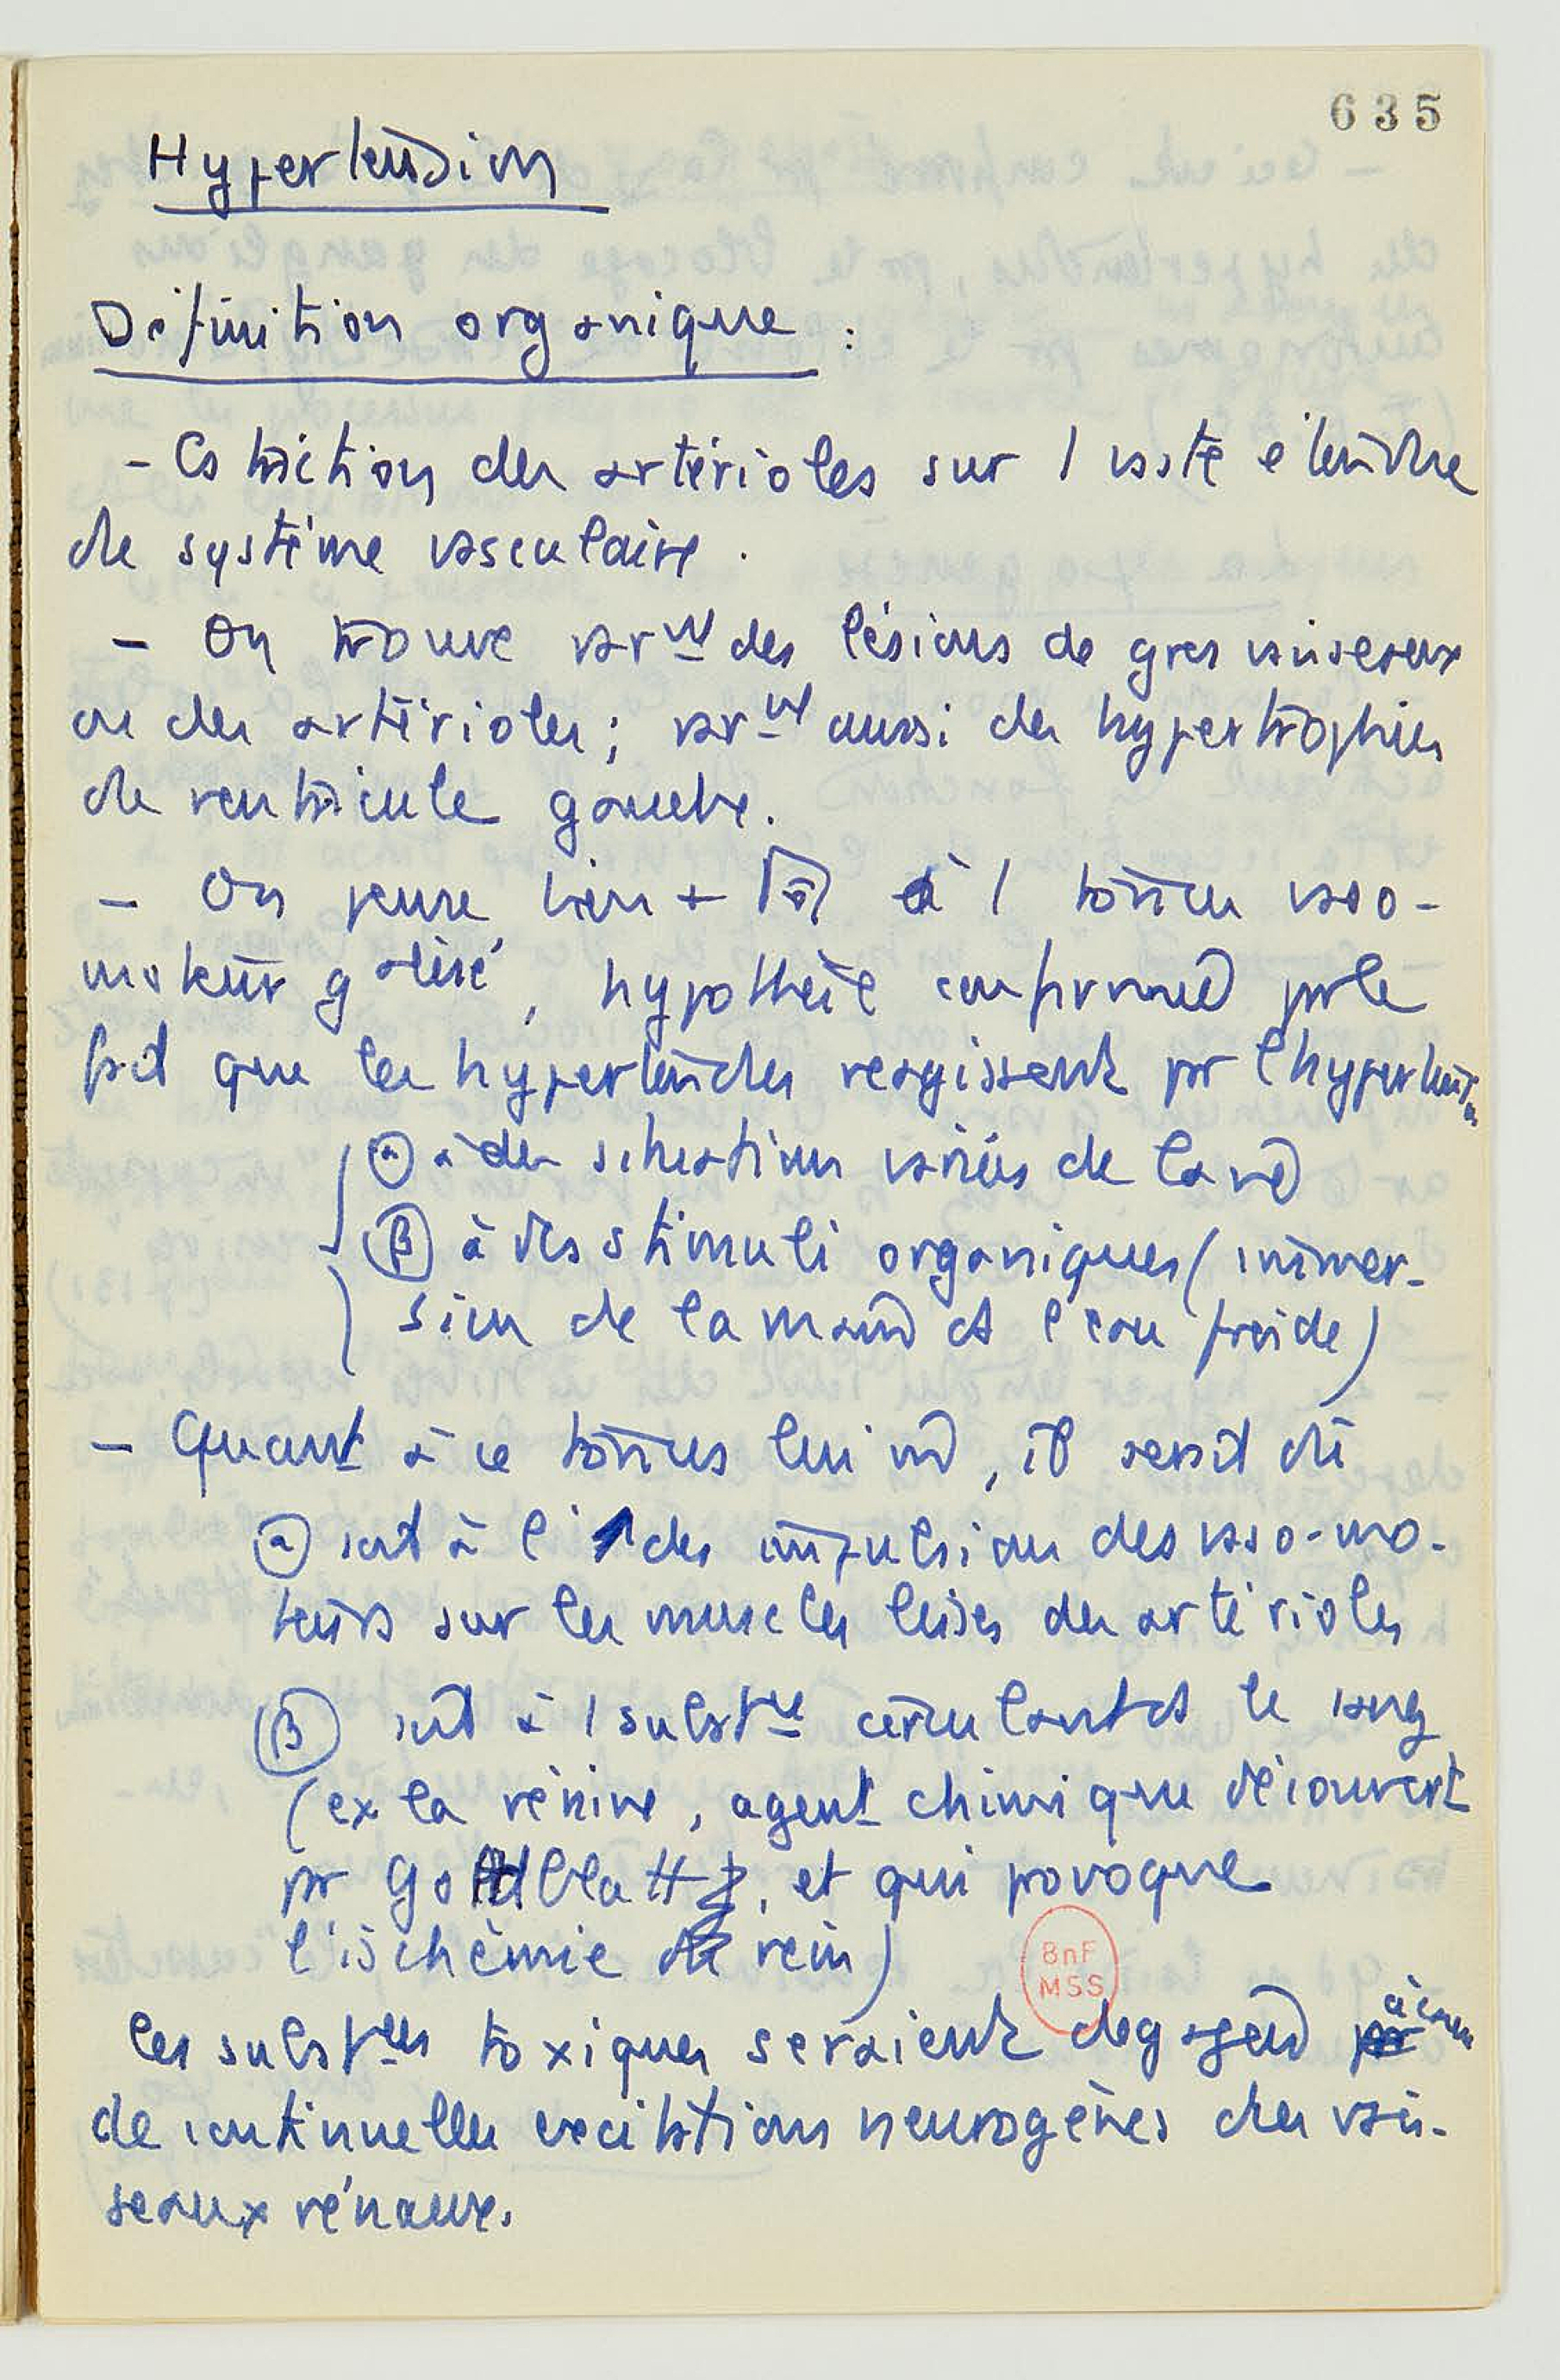 635
Hypertension
Définition organique :
- Cstriction des artérioles sur 1 vaste étendue
de système vasculaire.
- On trouve svt des lésions de gros vaisseaux
ou des artérioles ; svt aussi des hypertrophies
de ventricule gauche.
- On pense, bien + à 1 tonus vaso-
moteur galisé, hypothèse confirmée par le
fait que les hypertendus réagissent par l'hypertension
(α) à des situations variées de la
(β) à des stimuli organiques (immer-
sion de la main ds l'eau froide)
- Quant à ce tonus lui m̂, il serait dû
(α) soit à l' ↑ des impulsions des vaso-mo-
teurs sur les muscles lisses des artérioles
(β) soit à 1 substce circulant ds le sang
(ex la rénine, agent chimique découvert
par Goldblatt, et qui provoque
l'ischémie de rein)
les substces toxiques seraient dégagées à cause
de continuelles excitations neurogènes des vais-
seaux rénaux.
BnF
MSS